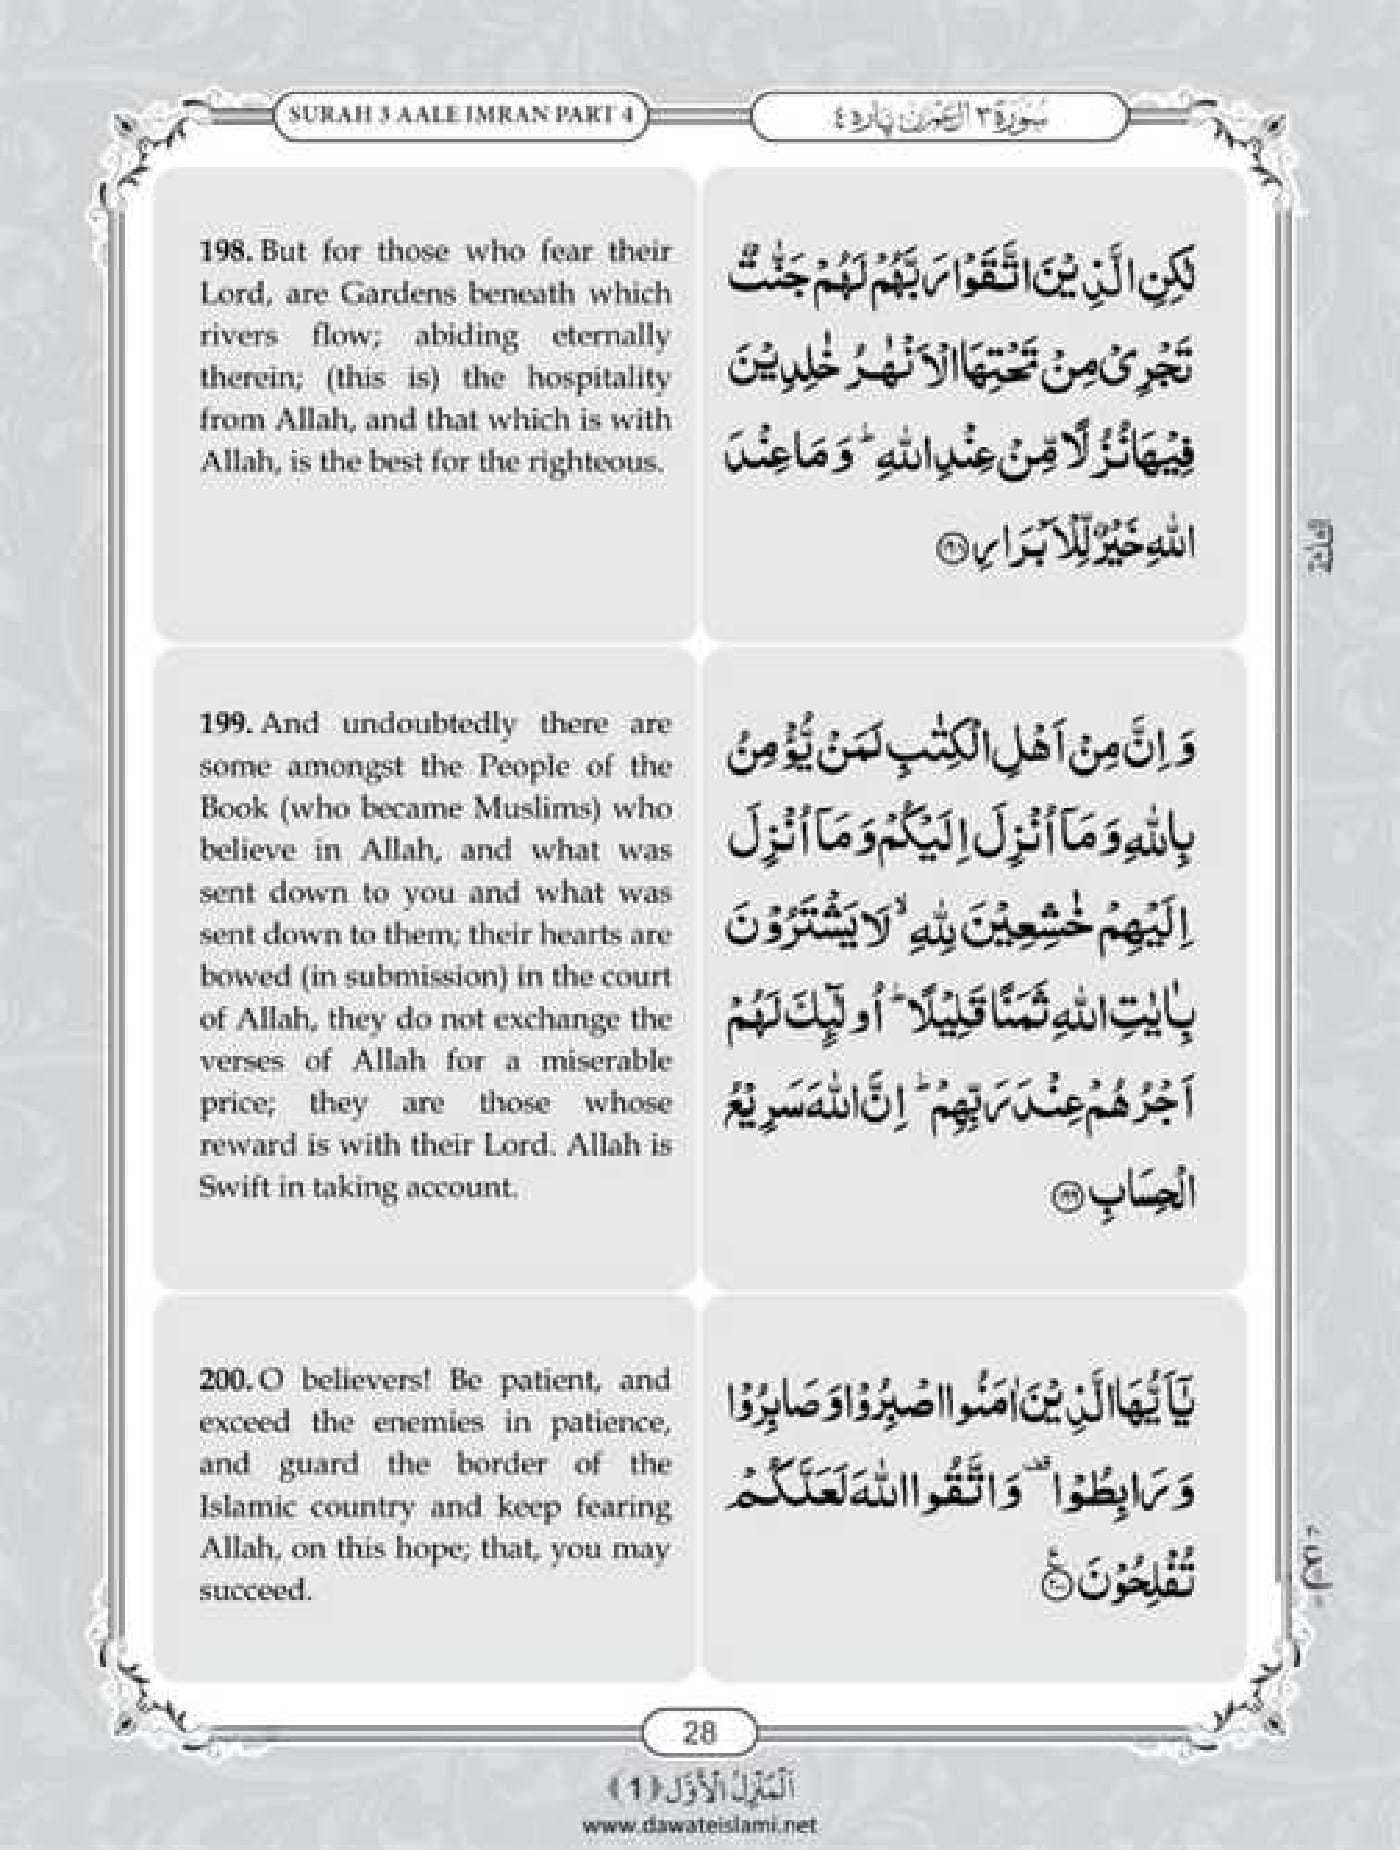 SURAH 3 AALE IMRAN PART 4
سُوْرَة ٣ اٰل عِمْرٰن پارہ ٤
198. But for those who fear their
Lord, are Gardens beneath which
rivers flow; abiding eternally
therein; (this is) the hospitality
from Allah, and that which is with
Allah, is the best for the righteous.
لٰكِنِ الَّذِيْنَ اتَّقَوْا رَبَّهُمْ لَهُمْ جَنّٰتٌ
تَجْرِيْ مِنْ تَحْتِهَا الْاَنْهٰرُ خٰلِدِيْنَ
فِيْهَا نُزُلًا مِّنْ عِنْدِ اللّٰهِ ؕ وَمَا عِنْدَ
اللّٰهِ خَيْرٌ لِّلْاَبْرَارِ ﴿۱۹۸﴾
199. And undoubtedly there are
some amongst the People of the
Book (who became Muslims) who
believe in Allah, and what was
sent down to you and what was
sent down to them; their hearts are
bowed (in submission) in the court
of Allah, they do not exchange the
verses of Allah for a miserable
price; they are those whose
reward is with their Lord. Allah is
Swift in taking account.
وَ اِنَّ مِنْ اَهْلِ الْكِتٰبِ لَمَنْ يُّؤْمِنُ
بِاللّٰهِ وَ مَاۤ اُنْزِلَ اِلَيْكُمْ وَ مَاۤ اُنْزِلَ
اِلَيْهِمْ خٰشِعِيْنَ لِلّٰهِ ۙ لَا يَشْتَرُوْنَ
بِاٰيٰتِ اللّٰهِ ثَمَنًا قَلِيْلًا ؕ اُولٰٓئِكَ لَهُمْ
اَجْرُهُمْ عِنْدَ رَبِّهِمْ ؕ اِنَّ اللّٰهَ سَرِيْعُ
الْحِسَابِ ﴿۱۹۹﴾
200. O believers! Be patient, and
exceed the enemies in patience,
and guard the border of the
Islamic country and keep fearing
Allah, on this hope; that, you may
succeed.
يٰۤاَيُّهَا الَّذِيْنَ اٰمَنُوا اصْبِرُوْا وَ صَابِرُوْا
وَ رَابِطُوْا ۫ وَ اتَّقُوا اللّٰهَ لَعَلَّكُمْ
تُفْلِحُوْنَ ﴿۲۰۰﴾
28
اَلْمَنْزِلُ الْاَوَّل ﴿1﴾
www.dawateislami.net